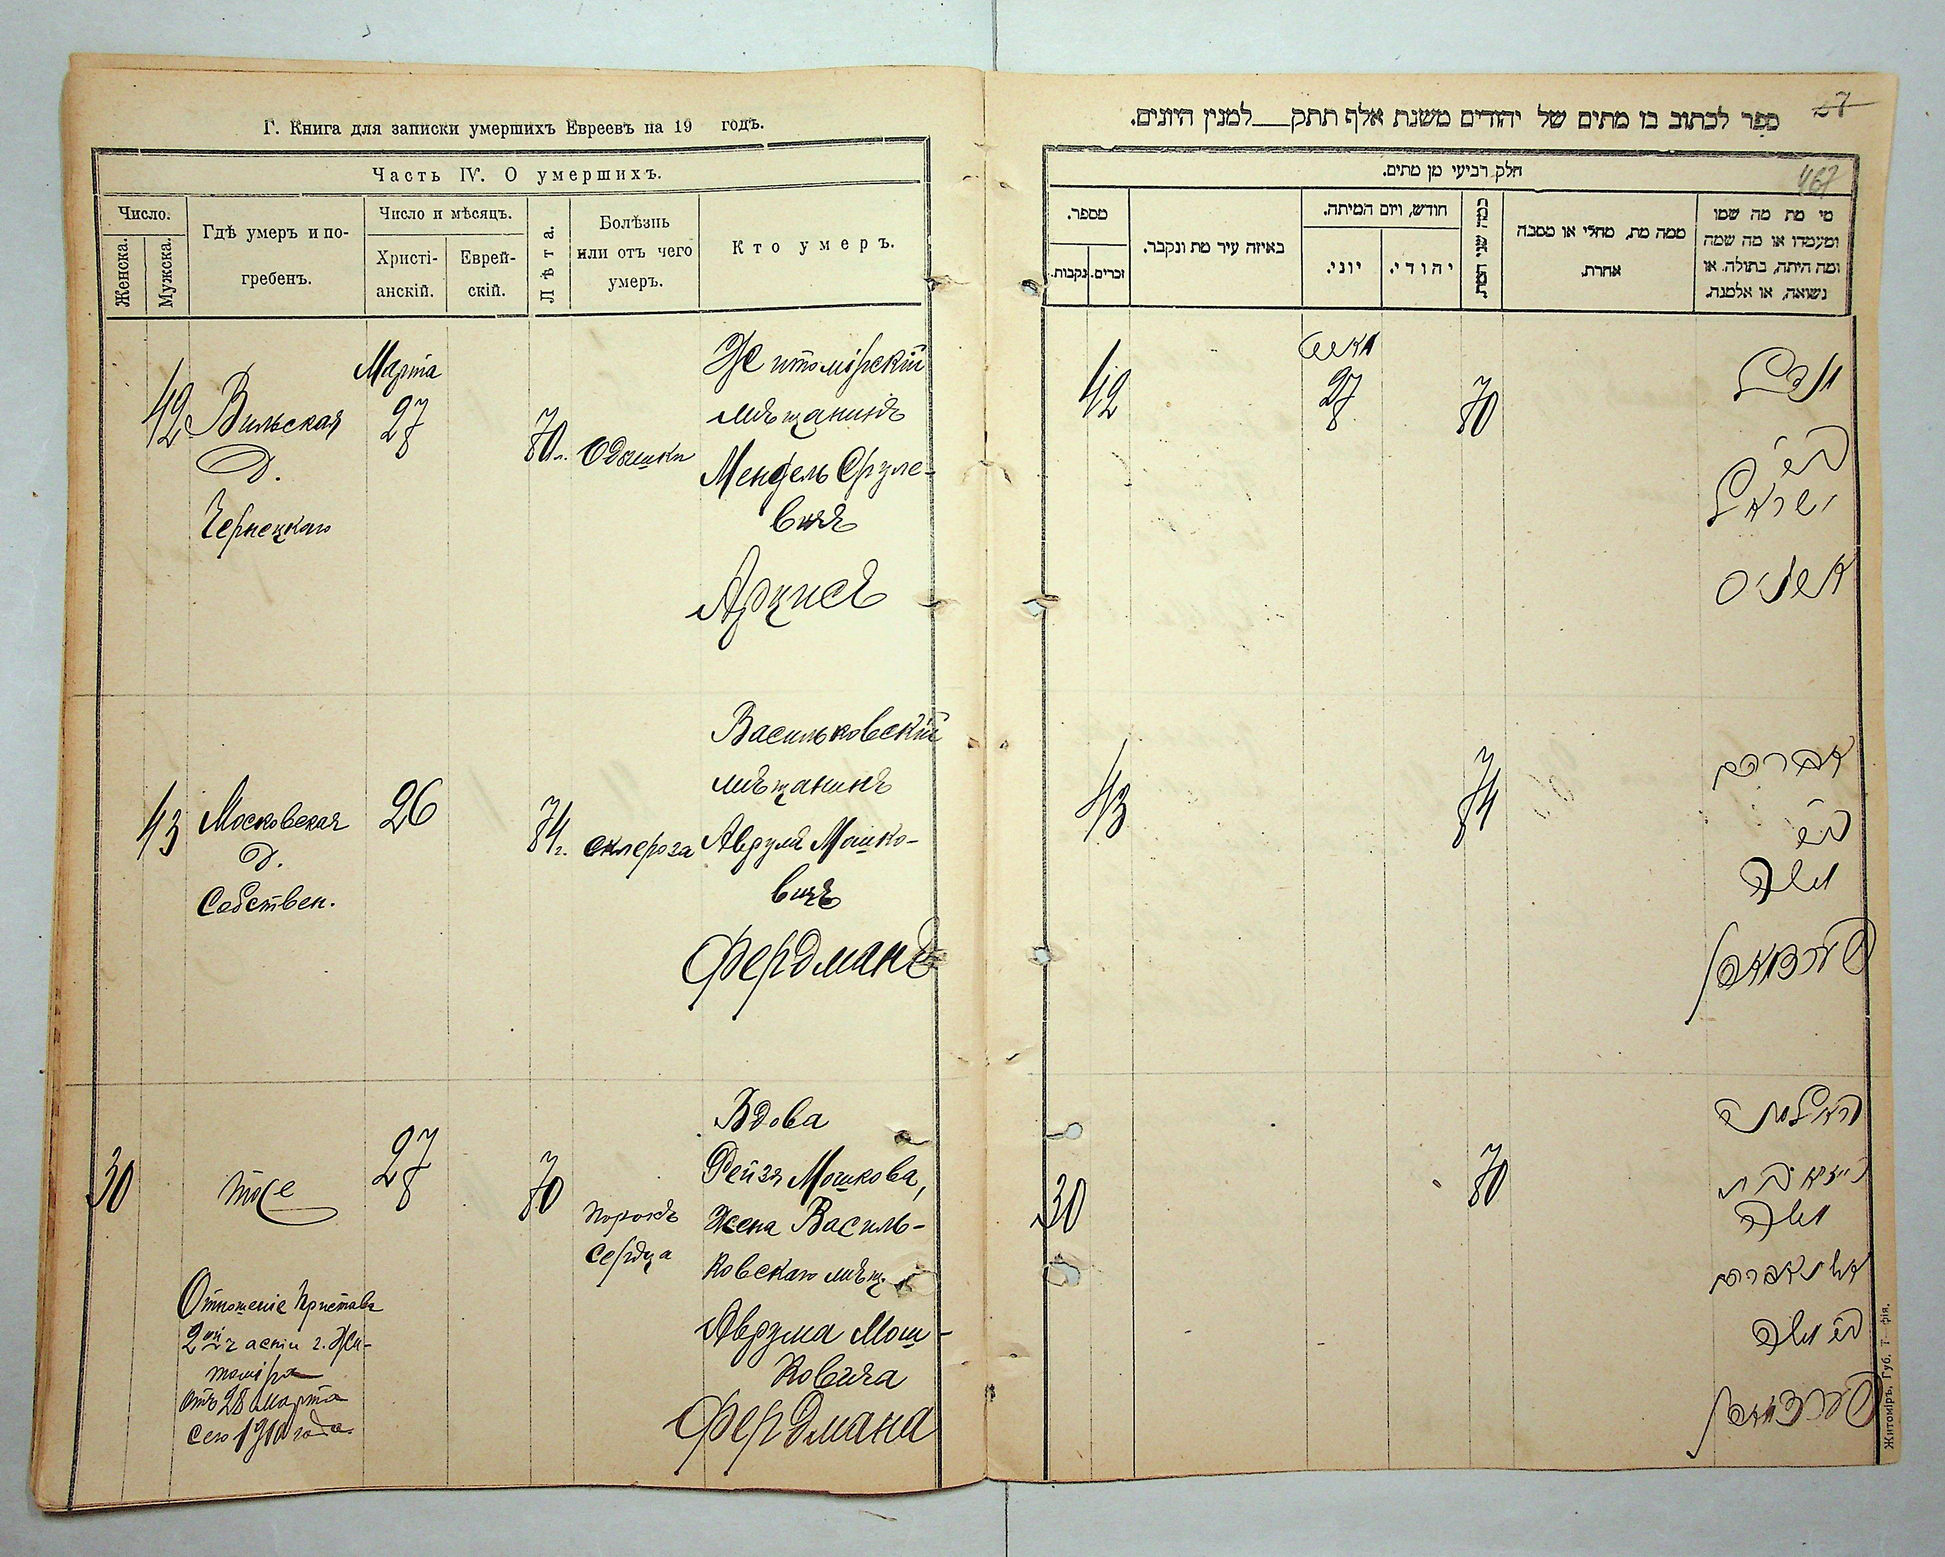 Г. Книга для записки умершихъ Евреевъ на 19 годъ.
Часть IV. О умершихъ.
Число.
Женска.
Мужска.
Гдѣ умеръ и по-
гребенъ.
Число и мѣсяцъ.
Христі-
анскій.
Еврей-
скій.
Лѣта.
Болѣзнь
или отъ чего
умеръ.
Кто умеръ.
42
Вильская
д.
Чернецкаго
Марта
27
70 л.
Одышки
Житомірскій
мѣщанинъ
Мендель Сруле-
вичъ
43
Московская
д.
Собствен.
26
74 г.
склероза
Васильковскій
мѣщанинъ
Аврумъ Мошко-
вичъ
Фердманъ
30
тоже
27
70
порокъ
сердца
Вдова
Рейзя Мошкова,
Жена Василь-
ковскаго мѣщ.
Аврума Мош-
ковича
Фердмана
Отношеніе Пристава
2ой части г. Жи-
томіра
отъ 28 марта
сего 1910 года
ספר לכתוב בו מתים של יהודים משנת אלף תתק__למנין היונים.
467
חלק רביעי מן מתים.
מספר.
נקבות.
זכרים.
באיזה עיר מת ונקבר.
חודש, ויום המיתה.
יוני.
יהודי.
כמה שני המת
ממה מת, מחלי או מסבה
אחרת.
מי מת מה שמו
ומעמדו או מה שמה
ומה היתה, בתולה. או
נשואה, או אלמנה.
42
מארט
27
70
מענדיל
ב״ר
ישראל
43
74
אברהם
ב״ר
משה
פערדמאן
30
70
האלמנה
רייזא בת
משה
אשת אברהם
ב״ר משה
פערדמאן
Житоміръ, Губ. Т—фія.